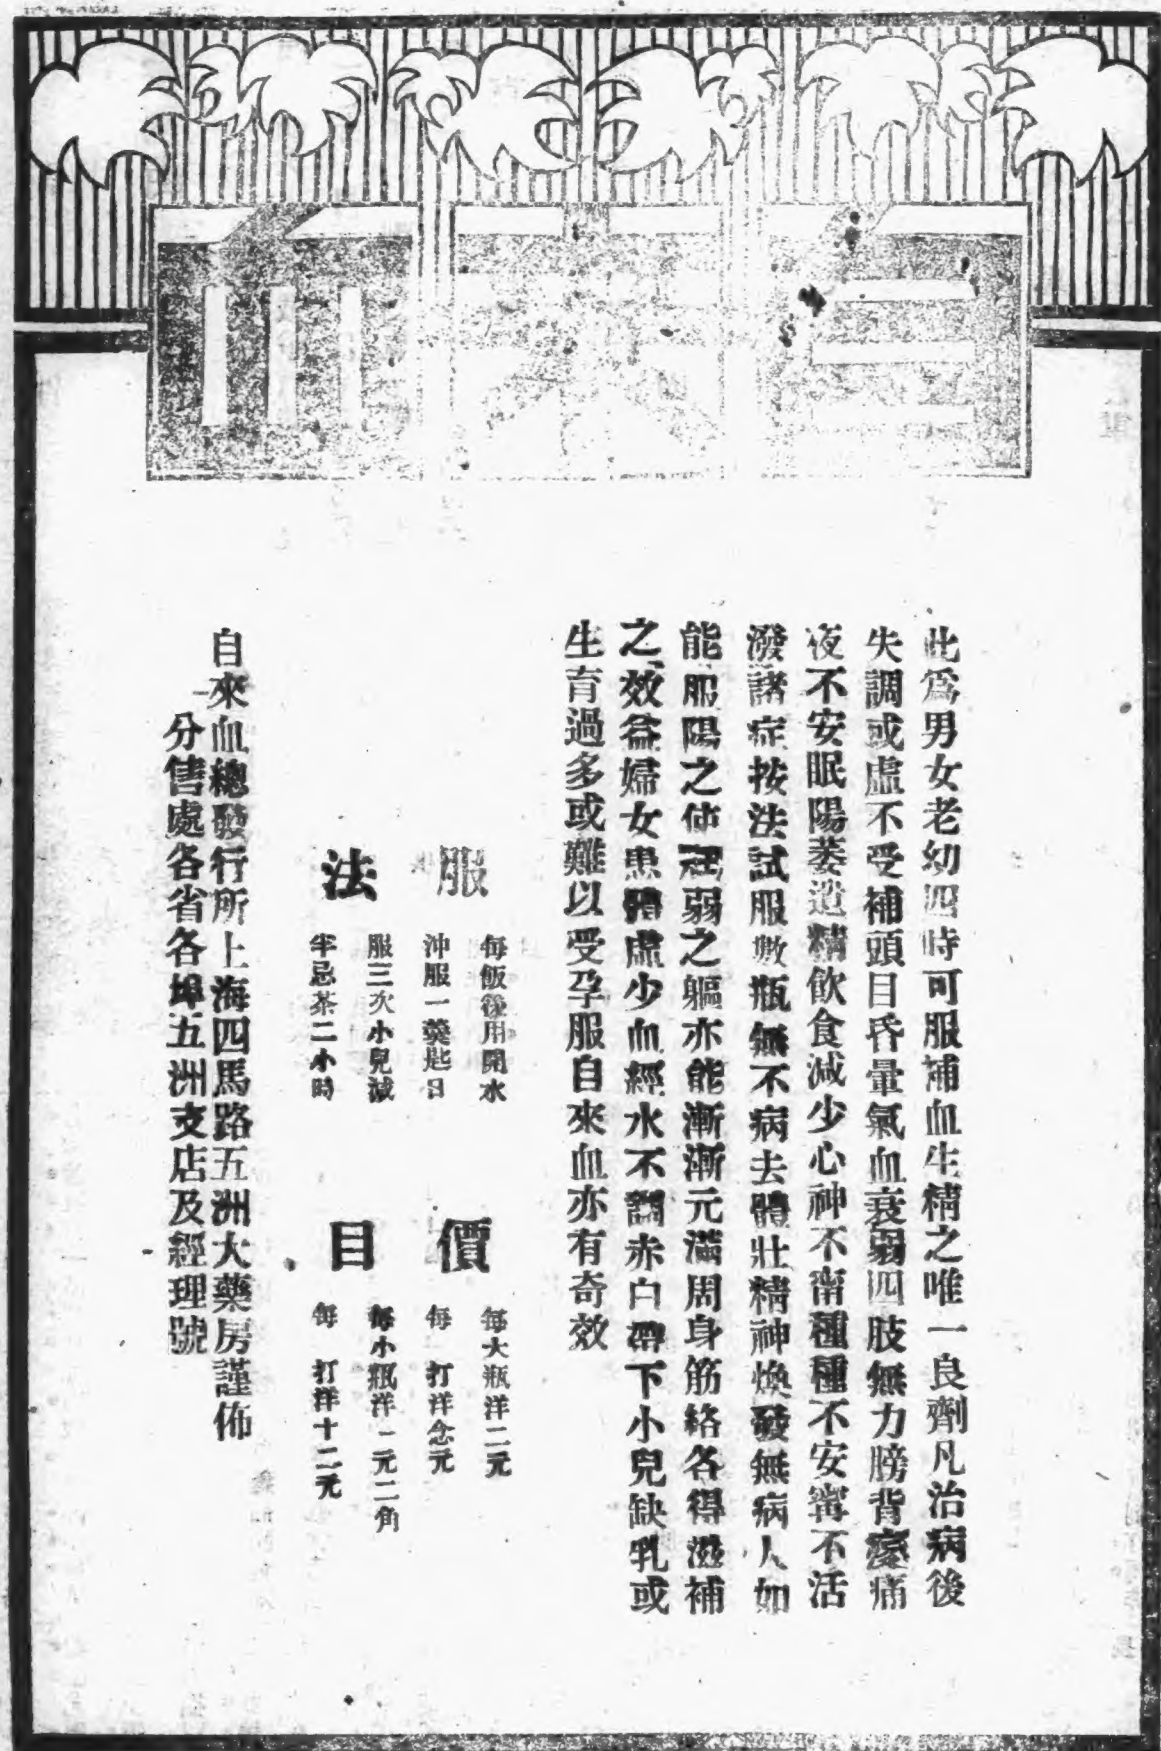 自來血
此爲男女老幼四時可服補血生精之唯一良劑凡治病後
失調或虛不受補頭目昏暈氣血衰弱四肢無力膀背痠痛
夜不安眠陽萎遺精飲食減少心神不甯種種不安甯不活
潑諸症按法試服數瓶無不病去體壯精神煥發無病人如
能服陽之使弱之軀亦能漸漸元滿周身筋絡各得滋補
之效益婦女患體虛少血經水不調赤白帶下小兒缺乳或
生育過多或難以受孕服自來血亦有奇效
服法
每飯後用開水
沖服一羹匙日
服三次小兒減
半忌茶二小時
價目
每大瓶洋二元
每打洋念元
每小瓶洋一元二角
每打洋十二元
自來血總發行所上海四馬路五洲大藥房謹佈
分售處各省各埠五洲支店及經理號